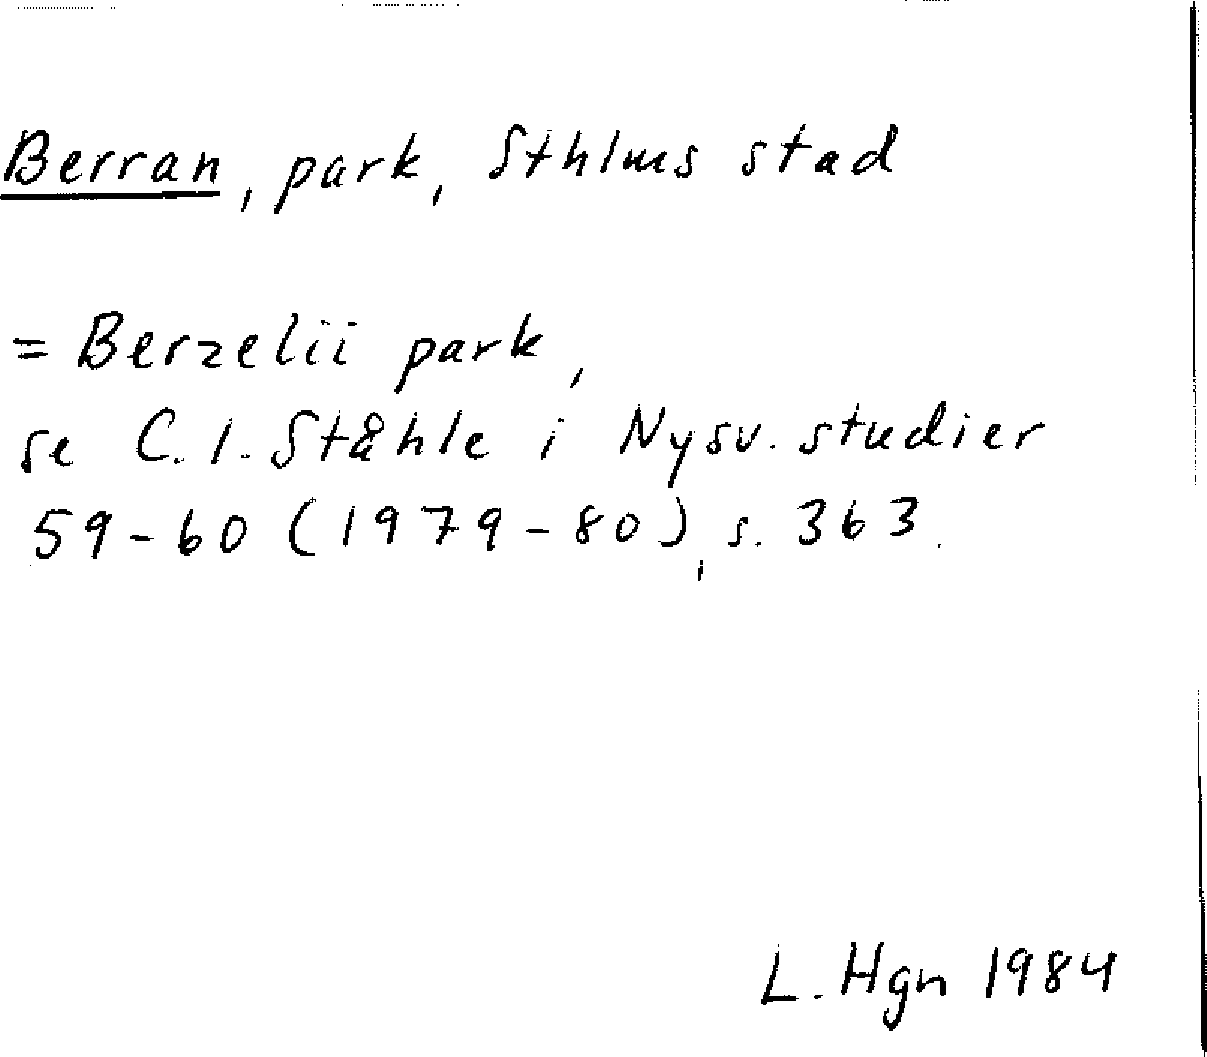 Berran, park, Sthlms stad
= Berzelii park,
se C. I. Ståhle i Nysv. studier
59-60 (1979-80), s. 363.
L. Hgn 1984